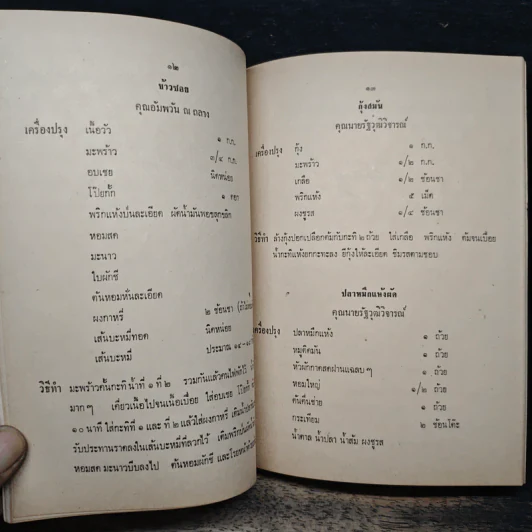 ๑๒
ข้าวซอย
คุณอัมพวัน ณ ถลาง
เครื่องปรุง เนื้อวัว ๑ ก.ก.
มะพร้าว ๓/๔ ก.ก.
อบเชย นิดหน่อย
โป๊ยกั๊ก ๑ ดอก
พริกแห้งป่นละเอียด ผัดน้ำมันพอขลุกขลิก
หอมสด
มะนาว
ใบผักชี
ต้นหอมหั่นละเอียด
ผงกาหรี่ ๒ ช้อนชา
เส้นบะหมี่ทอด นิดหน่อย
เส้นบะหมี่ ประมาณ
วิธีทำ มะพร้าวคั้นกะทิ น้ำที่ ๑ ที่ ๒ รวมกันแล้วตั้งไฟ
มากๆ เคี่ยวเนื้อไปจนเนื้อเปื่อย ใส่อบเชย โป๊ยกั๊ก
๑๐ นาที ใส่กะทิที่ ๑ และ ที่ ๒ แล้วใส่ผงกาหรี่
รับประทานราดลงในเส้นบะหมี่ที่ลวกไว้ เติมพริกป่นผัด
หอมสด มะนาวบีบลงไป ต้นหอมผักชี และโรย
๑๓
กุ้งสมัน
คุณนายรัฐวุฒิวิจารณ์
เครื่องปรุง กุ้ง ๑ ก.ก.
มะพร้าว ๑/๒ ก.ก.
เกลือ ๑/๒ ช้อนชา
พริกแห้ง ๕ เม็ด
ผงชูรส ๑/๔ ช้อนชา
วิธีทำ ล้างกุ้งปอกเปลือกต้มกับกะทิ ๒ ถ้วย ใส่เกลือ พริกแห้ง ต้มจนเปื่อย
น้ำกะทิแห้งยกกะทะลง ยีกุ้งให้ละเอียด ชิมรสตามชอบ
ปลาหมึกแห้งผัด
คุณนายรัฐวุฒิวิจารณ์
เครื่องปรุง ปลาหมึกแห้ง ๑ ถ้วย
หมูติดมัน ๑ ถ้วย
หัวผักกาดสดฝานแฉลบๆ ๑ ถ้วย
หอมใหญ่ ๑/๒ ถ้วย
ต้นคื่นช่าย ๑ ถ้วย
กระเทียม ๒ ช้อนโต๊ะ
น้ำตาล น้ำปลา น้ำส้ม ผงชูรส